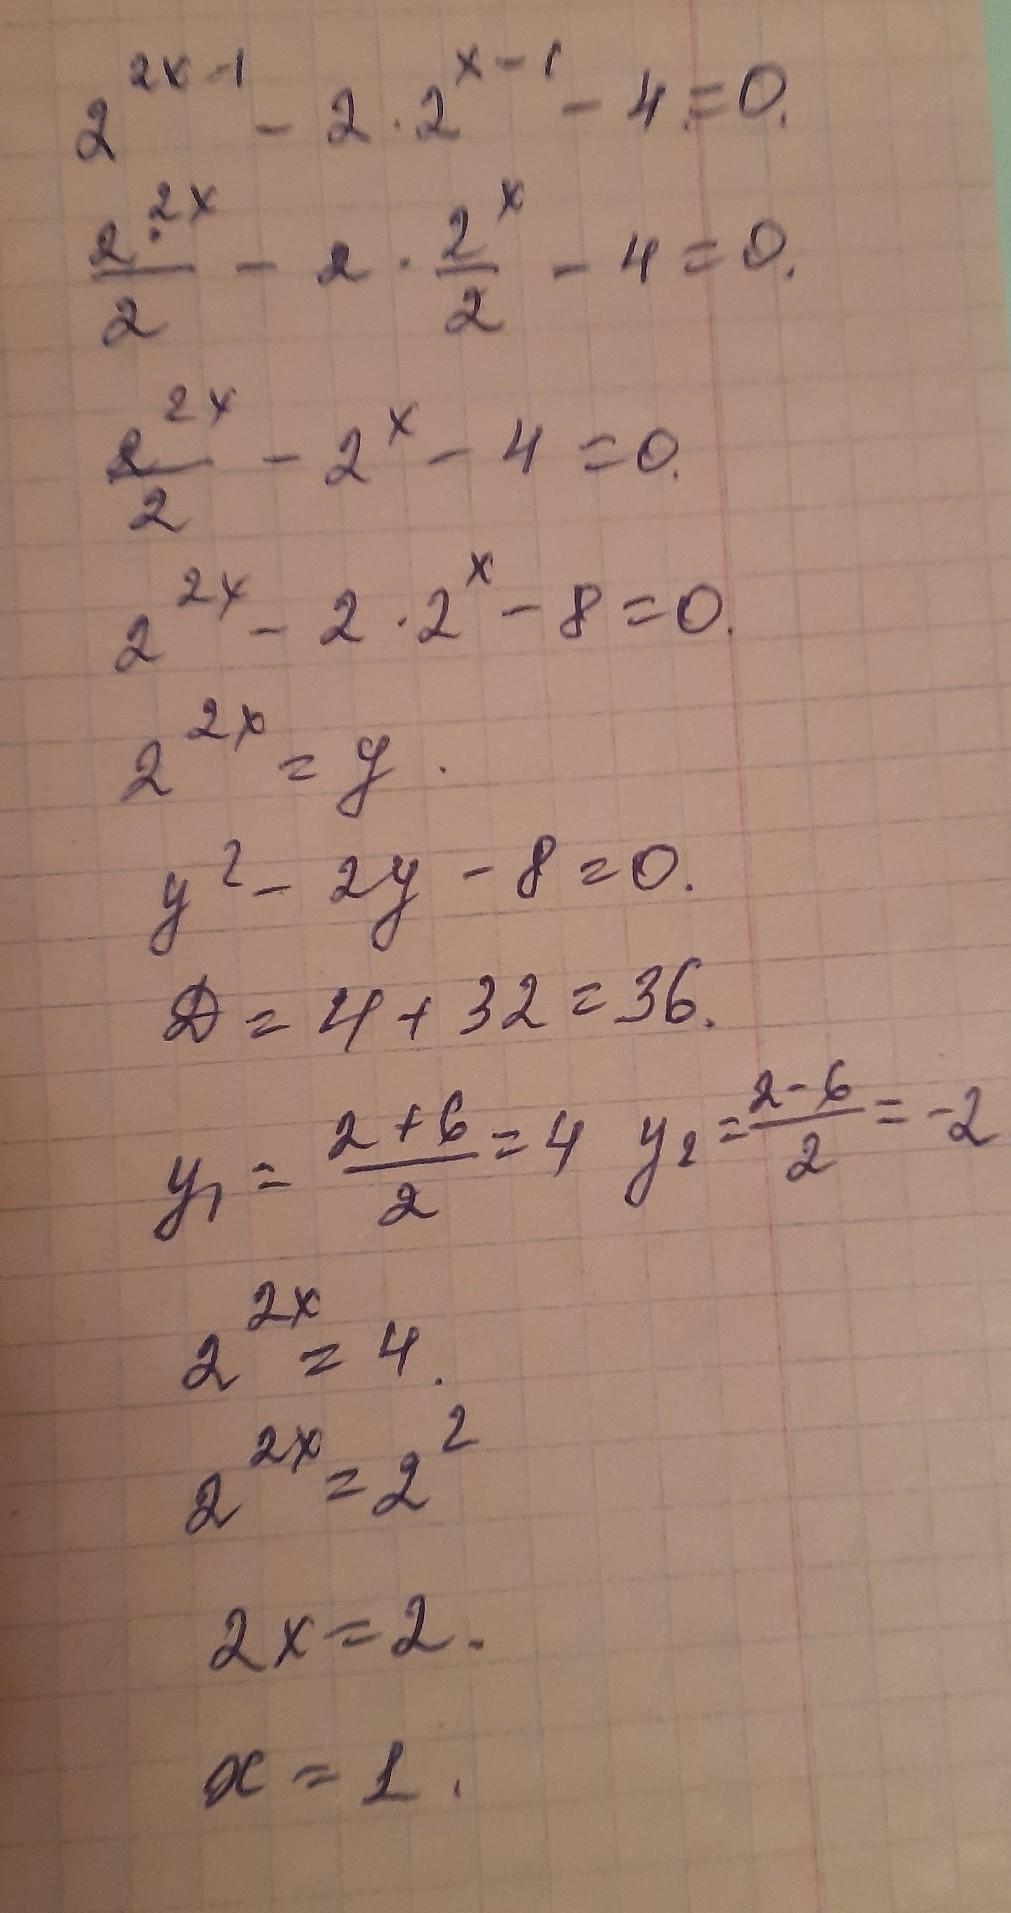 2^{2x-1} - 2 · 2^{x-1} - 4 = 0.
\frac{2^{2x}}{2} - 2 · \frac{2^x}{2} - 4 = 0.
\frac{2^{2x}}{2} - 2^x - 4 = 0.
2^{2x} - 2 · 2^x - 8 = 0.
2^{2x} = y.
y^2 - 2y - 8 = 0.
D = 4 + 32 = 36.
y_1 = \frac{2+6}{2} = 4 y_2 = \frac{2-6}{2} = -2
2^{2x} = 4.
2^{2x} = 2^2
2x = 2.
x = 1.